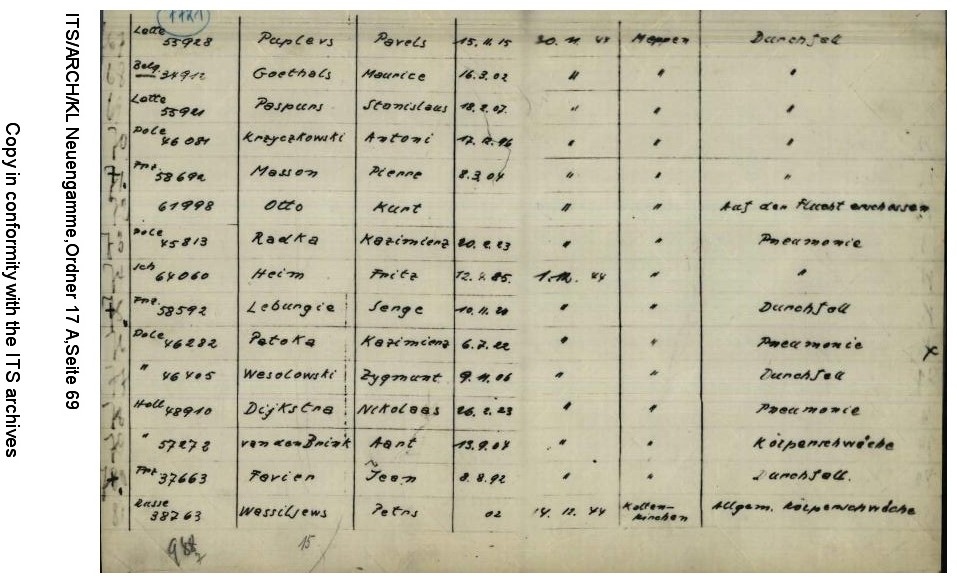 ITS/ARCH/KL Neuengamme,Ordner 17 A,Seite 69
Copy in conformity with the ITS archives
1121
Lette 55928 Puplevs Pavels 15.11.15 30.11.44 Meppen Durchfall
Belg. 34912 Goethals Maurice 16.3.02 " " "
Lette 55921 Paspurs Stanislaus 18.2.07. " " "
Pole 46081 Krzyczkowski Antoni 17. 96 " " "
Frz. 58692 Masson Pierre 8.3.04 " " "
61998 Otto Kurt " " Auf der Flucht erschossen
Pole 45813 Radka Kazimierz 20.2.23 " " Pneumonie
Sch 64060 Heim Fritz 12. .85. 1.12. 44 " "
Frz. 58592 Lebungie Serge 10.11.20 " " Durchfall
Pole 46282 Patoka Kazimierz 6.7.22 " " Pneumonie
" 46405 Wesolowski Zygmunt 9.11.06 " " Durchfall
Holl 48910 Dijkstra Nikolaas 26.2.23 " " Pneumonie
" 57272 van den Brink Aart 13.9.04 " " Körperschwäche
Frz 37663 Favier Jean 8.8.92 " " Durchfall.
Russe 38763 Wassiljews Petrs 02 14.12.44 Kalten-
kirchen Allgem. Körperschwäche
15